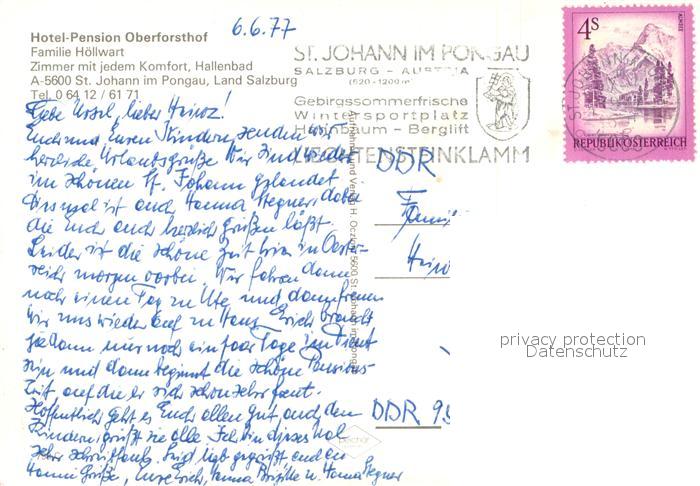 6.6.77
Hotel-Pension Oberforsthof
Familie Höllwart
Zimmer mit jedem Komfort, Hallenbad
A-5600 St. Johann im Pongau, Land Salzburg
Tel. 0 64 12 / 61 71
ST. JOHANN IM PONGAU
SALZBURG - AUSTRIA
Gebirgssommerfrische
Wintersportplatz
Berglift
LIECHTENSTEINKLAMM
4S
ALMSEE
REPUBLIK ÖSTERREICH
Liebe Ursel, lieber Heinz!
Euch und Euren Kindern senden wir
herzliche Urlaubsgrüße. Wir sind wieder
im schönen St. Johann gelandet
diesmal ist auch Hanna Wegner dabei
die Euch auch herzlich grüßen läßt.
Leider ist die schöne Zeit hier in Öster-
reich morgen vorbei. Wir fahren dann
noch einen Tag zu Ute und dann freuen
wir uns wieder auf zu Haus. Erich braucht
ja dann nur noch ein paar Tage im Dienst
sein und dann beginnt die schöne Pensions-
Zeit, auf die er sich schon sehr freut.
Hoffentlich geht es Euch allen gut, auch den
Kindern, grüßt sie alle. Ich bin dieses Mal
sehr schreibfaul. Seid lieb gegrüßt und
Grüße, Hanna Wegner
DDR
DDR
privacy protection
Datenschutz